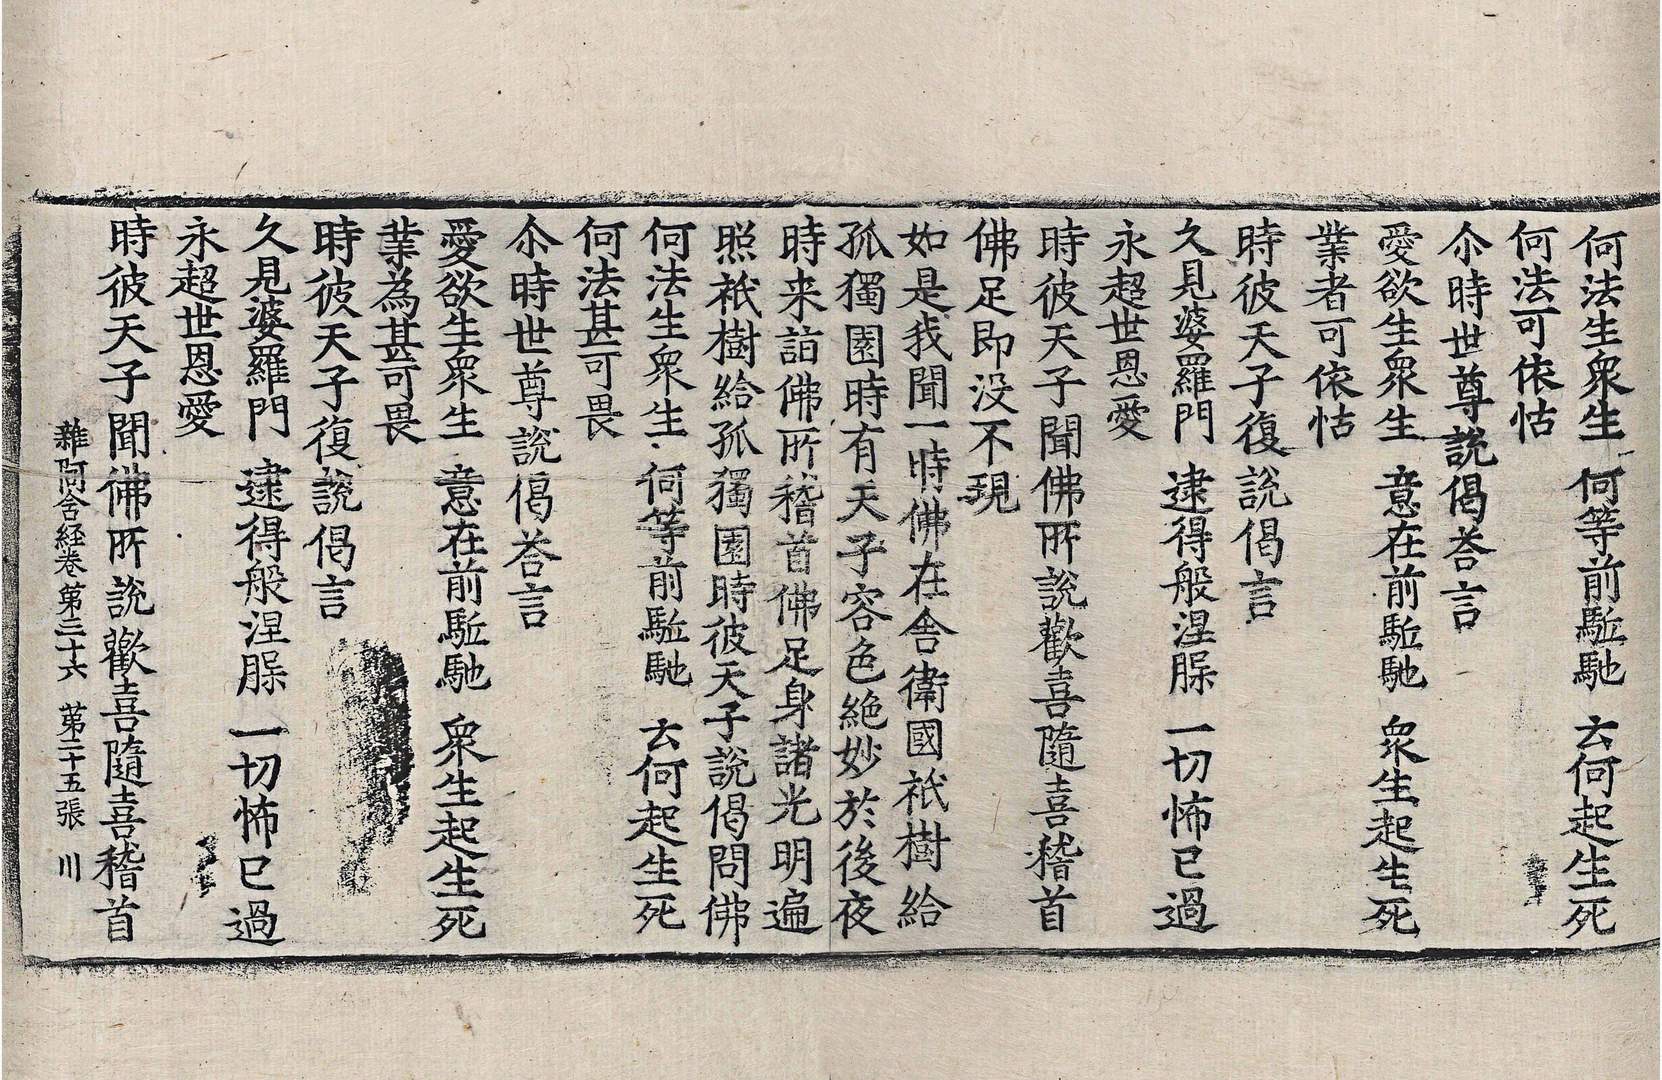 何法生衆生　何等前駈馳　云何起生死
何法可依怙
尒時世尊説偈荅言
愛欲生衆生　意在前駈馳　衆生起生死
業者可依怙
時彼天子復説偈言
久見婆羅門　逮得般涅脲　一切怖已過
永超世恩愛
時彼天子聞佛所説歡喜隨喜稽首
佛足即没不現
如是我聞一時佛在舎衛國祇樹給
孤獨園時有天子容色絶妙於後夜
時来詣佛所稽首佛足身諸光明遍
照祇樹給孤獨園時彼天子説偈問佛
何法生衆生　何等前駈馳　云何起生死
何法甚可畏
尒時世尊説偈荅言
愛欲生衆生　意在前駈馳　衆生起生死
業為甚可畏
時彼天子復説偈言
久見婆羅門　逮得般涅脲　一切怖已過
永超世恩愛
時彼天子聞佛所説歡喜隨喜稽首
雜阿含経卷第三十六　第二十五張　川